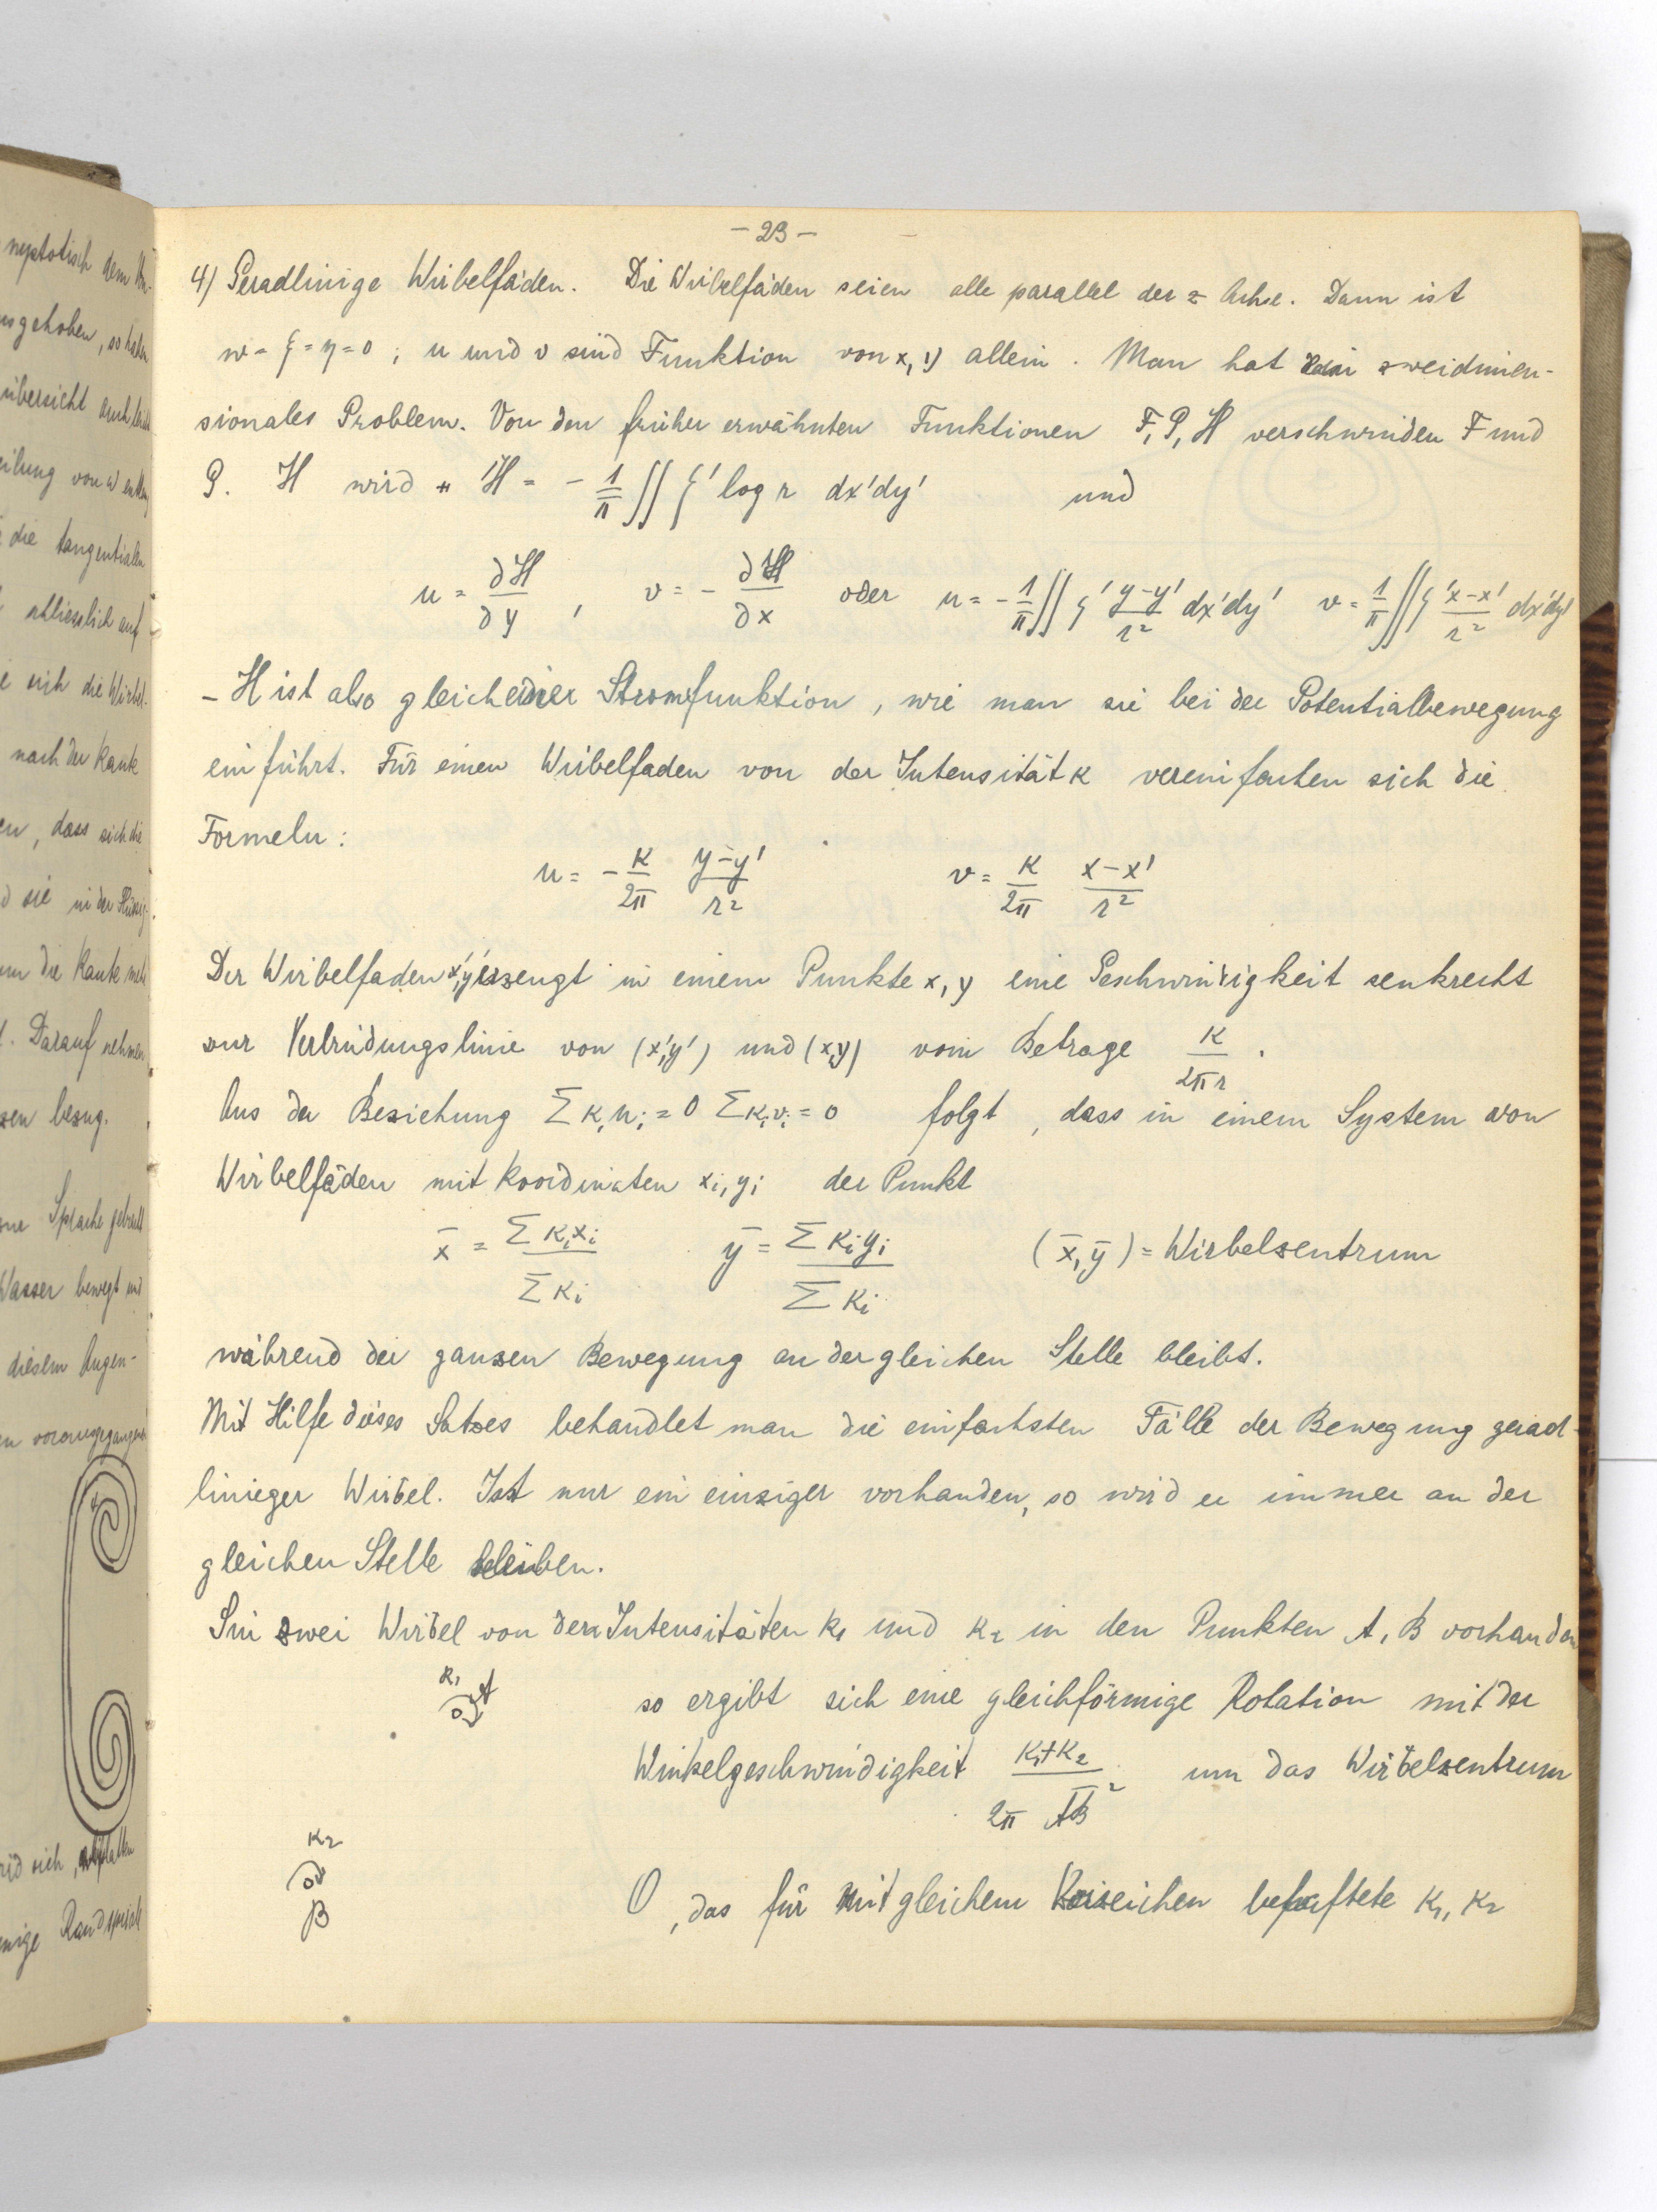 - 23 -
4) Geradlinige Wirbelfäden. Die Wirbelfäden seien alle parallel der z Achse. Dann ist
w = ξ = η = 0 ; u und v sind Funktion von x, y allein. Man hat ein zweidimen-
sionales Problem. Von den früher erwähnten Funktionen F, G, H verschwinden F und
G. H wird H = - 1/π ∬ ζ' log r dx'dy' und
u = ∂H/∂y , v = - ∂H/∂x oder u = - 1/π ∬ ζ' (y-y')/r² dx'dy' v = 1/π ∬ ζ' (x-x')/r² dx'dy'
- H ist also gleich einer Stromfunktion, wie man sie bei der Potentialbewegung
einführt. Für einen Wirbelfaden von der Intensität κ vereinfachen sich die
Formeln:
u = - κ/2π (y-y')/r² v = κ/2π (x-x')/r²
Der Wirbelfaden x',y' erzeugt in einem Punkte x, y eine Geschwindigkeit senkrecht
zur Verbindungslinie von (x',y') und (x,y) vom Betrage κ/2πr .
Aus der Beziehung Σκᵢuᵢ = 0 Σκᵢvᵢ = 0 folgt, dass in einem System von
Wirbelfäden mit Koordinaten xᵢ, yᵢ der Punkt
x̄ = Σκᵢxᵢ/Σκᵢ ȳ = Σκᵢyᵢ/Σκᵢ (x̄, ȳ) = Wirbelzentrum
während der ganzen Bewegung an der gleichen Stelle bleibt.
Mit Hilfe dieses Satzes behandlet man die einfachsten Fälle der Bewegung gerad-
linieger Wirbel. Ist nur ein einziger vorhanden, so wird er immer an der
gleichen Stelle bleiben.
Sin zwei Wirbel von den Intensitäten κ₁ und κ₂ in den Punkten A, B vorhanden
κ₁ A
so ergibt sich eine gleichförmige Rotation mit der
Winkelgeschwindigkeit (κ₁+κ₂)/(2π AB²) um das Wirbelzentrum
κ₂
B
O, das für mit gleichem Vorzeichen behaftete κ₁, κ₂